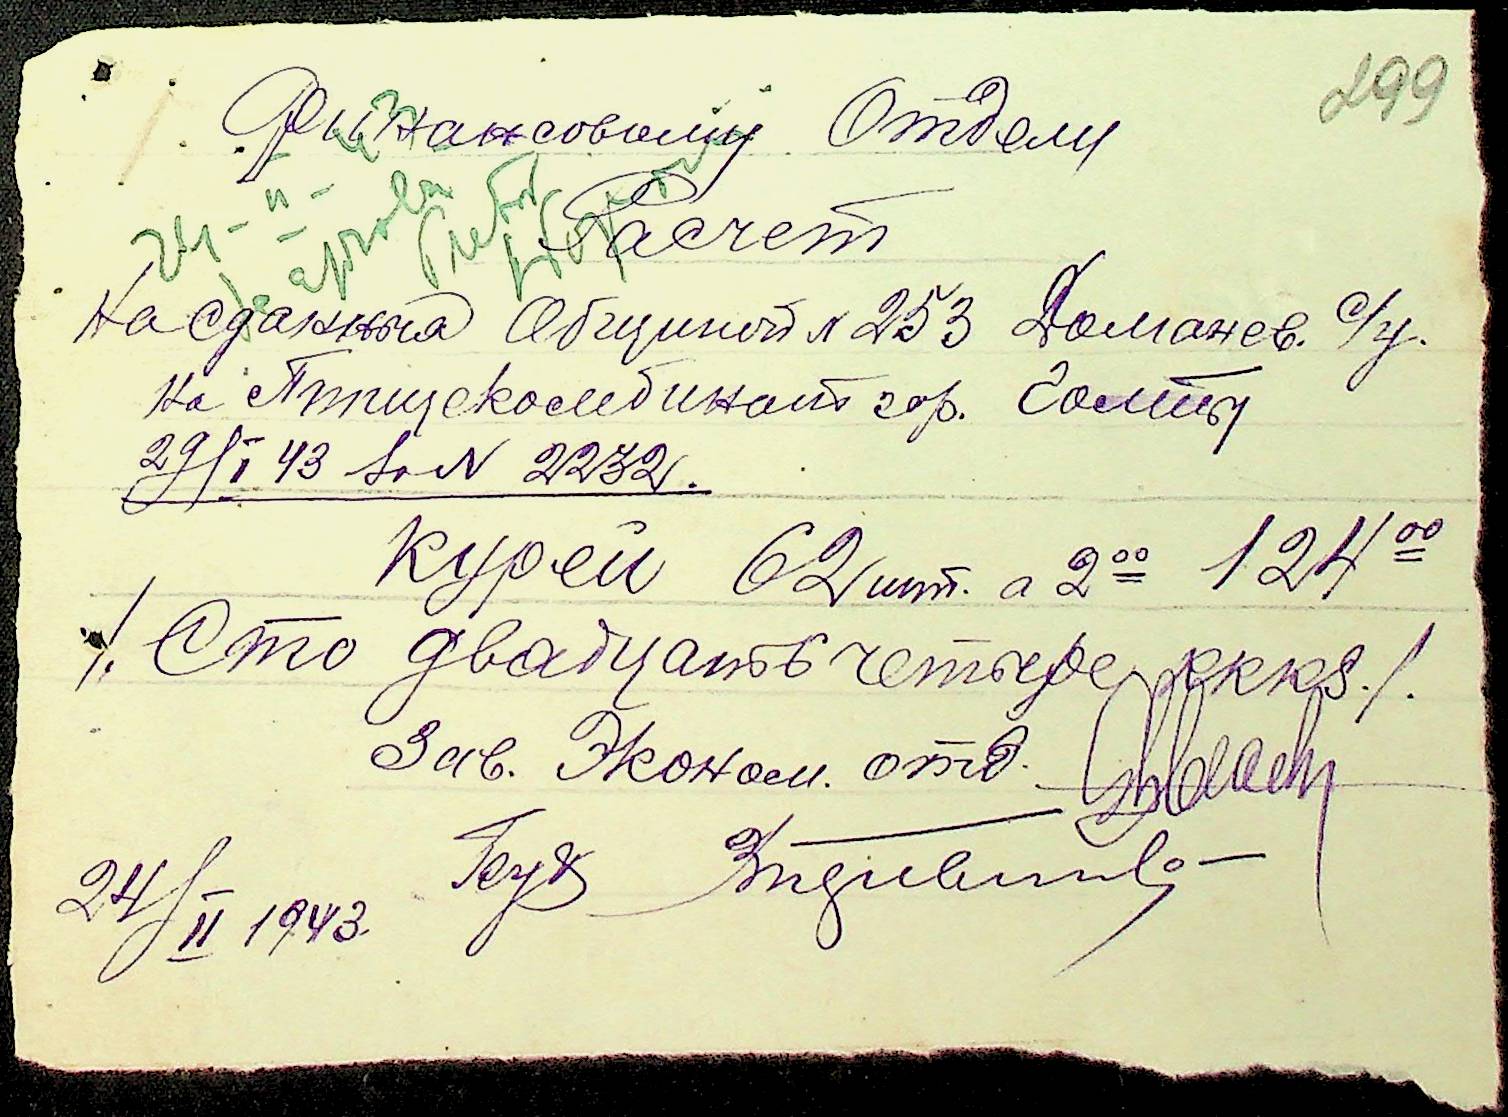 299
Финансовому Отделу
Расчет
На сданныя Общиной № 253 Доманев. с/у.
на Птицекомбинат гор. Голты
29/I 43 за № 2232.
Курей 62 шт. а 2 00 124 00
/. Сто двадцать четыре RKKS./.
Зав. Эконом. отд.
Бух
24/II 1943.